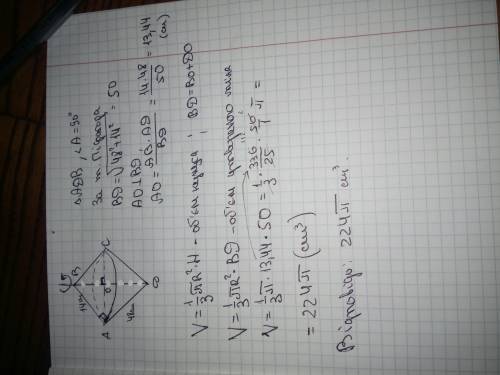 B
14см
A
O
C
48см
D
△ADB, ∠A=90°
За т. Піфагора
BD=√48²+14² = 50
AO⊥BD,
AO = AB·AD/BD = 14·48/50 = 13,44 (см)
V = 1/3 πR²·H - об'єм конуса ; BD=BO+DO
V = 1/3 πR²·BD - об'єм утвореного тіла
V = 1/3 π·13,44·50 = 1/3 · 336/25 · 50/1 π =
= 224π (см³)
Відповідь: 224π см³.